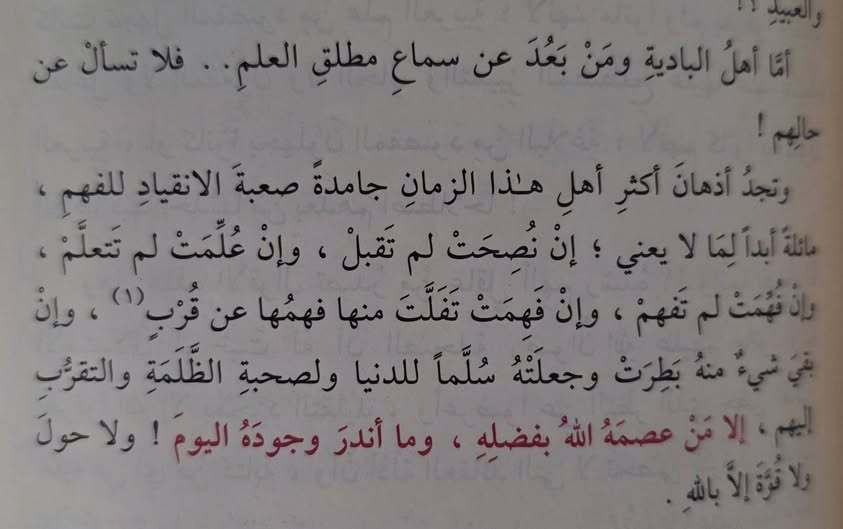 والعبيدِ ؟!
أمَّا أهلُ الباديةِ ومَنْ بَعُدَ عن سماعِ مطلقِ العلمِ . . فلا تسألْ عن
حالِهم !
وتجدُ أذهانَ أكثرِ أهلِ هـٰذا الزمانِ جامدةً صعبةَ الانقيادِ للفهمِ ،
مائلةً أبداً لِمَا لا يعني ؛ إنْ نُصِحَتْ لم تَقبلْ ، وإنْ عُلِّمَتْ لم تَتعلَّمْ ،
وإنْ فُهِّمَتْ لم تَفهمْ ، وإنْ فَهِمَتْ تَفَلَّتَ منها فهمُها عن قُرْبٍ(١) ، وإنْ
بقيَ شيءٌ منهُ بَطِرَتْ وجعلَتْهُ سُلَّماً للدنيا ولصحبةِ الظَّلَمَةِ والتقرُّبِ
إليهم ، إلا مَنْ عصمَهُ اللهُ بفضلِهِ ، وما أندرَ وجودَهُ اليومَ ! ولا حولَ
ولا قُوَّةَ إلاَّ باللهِ .